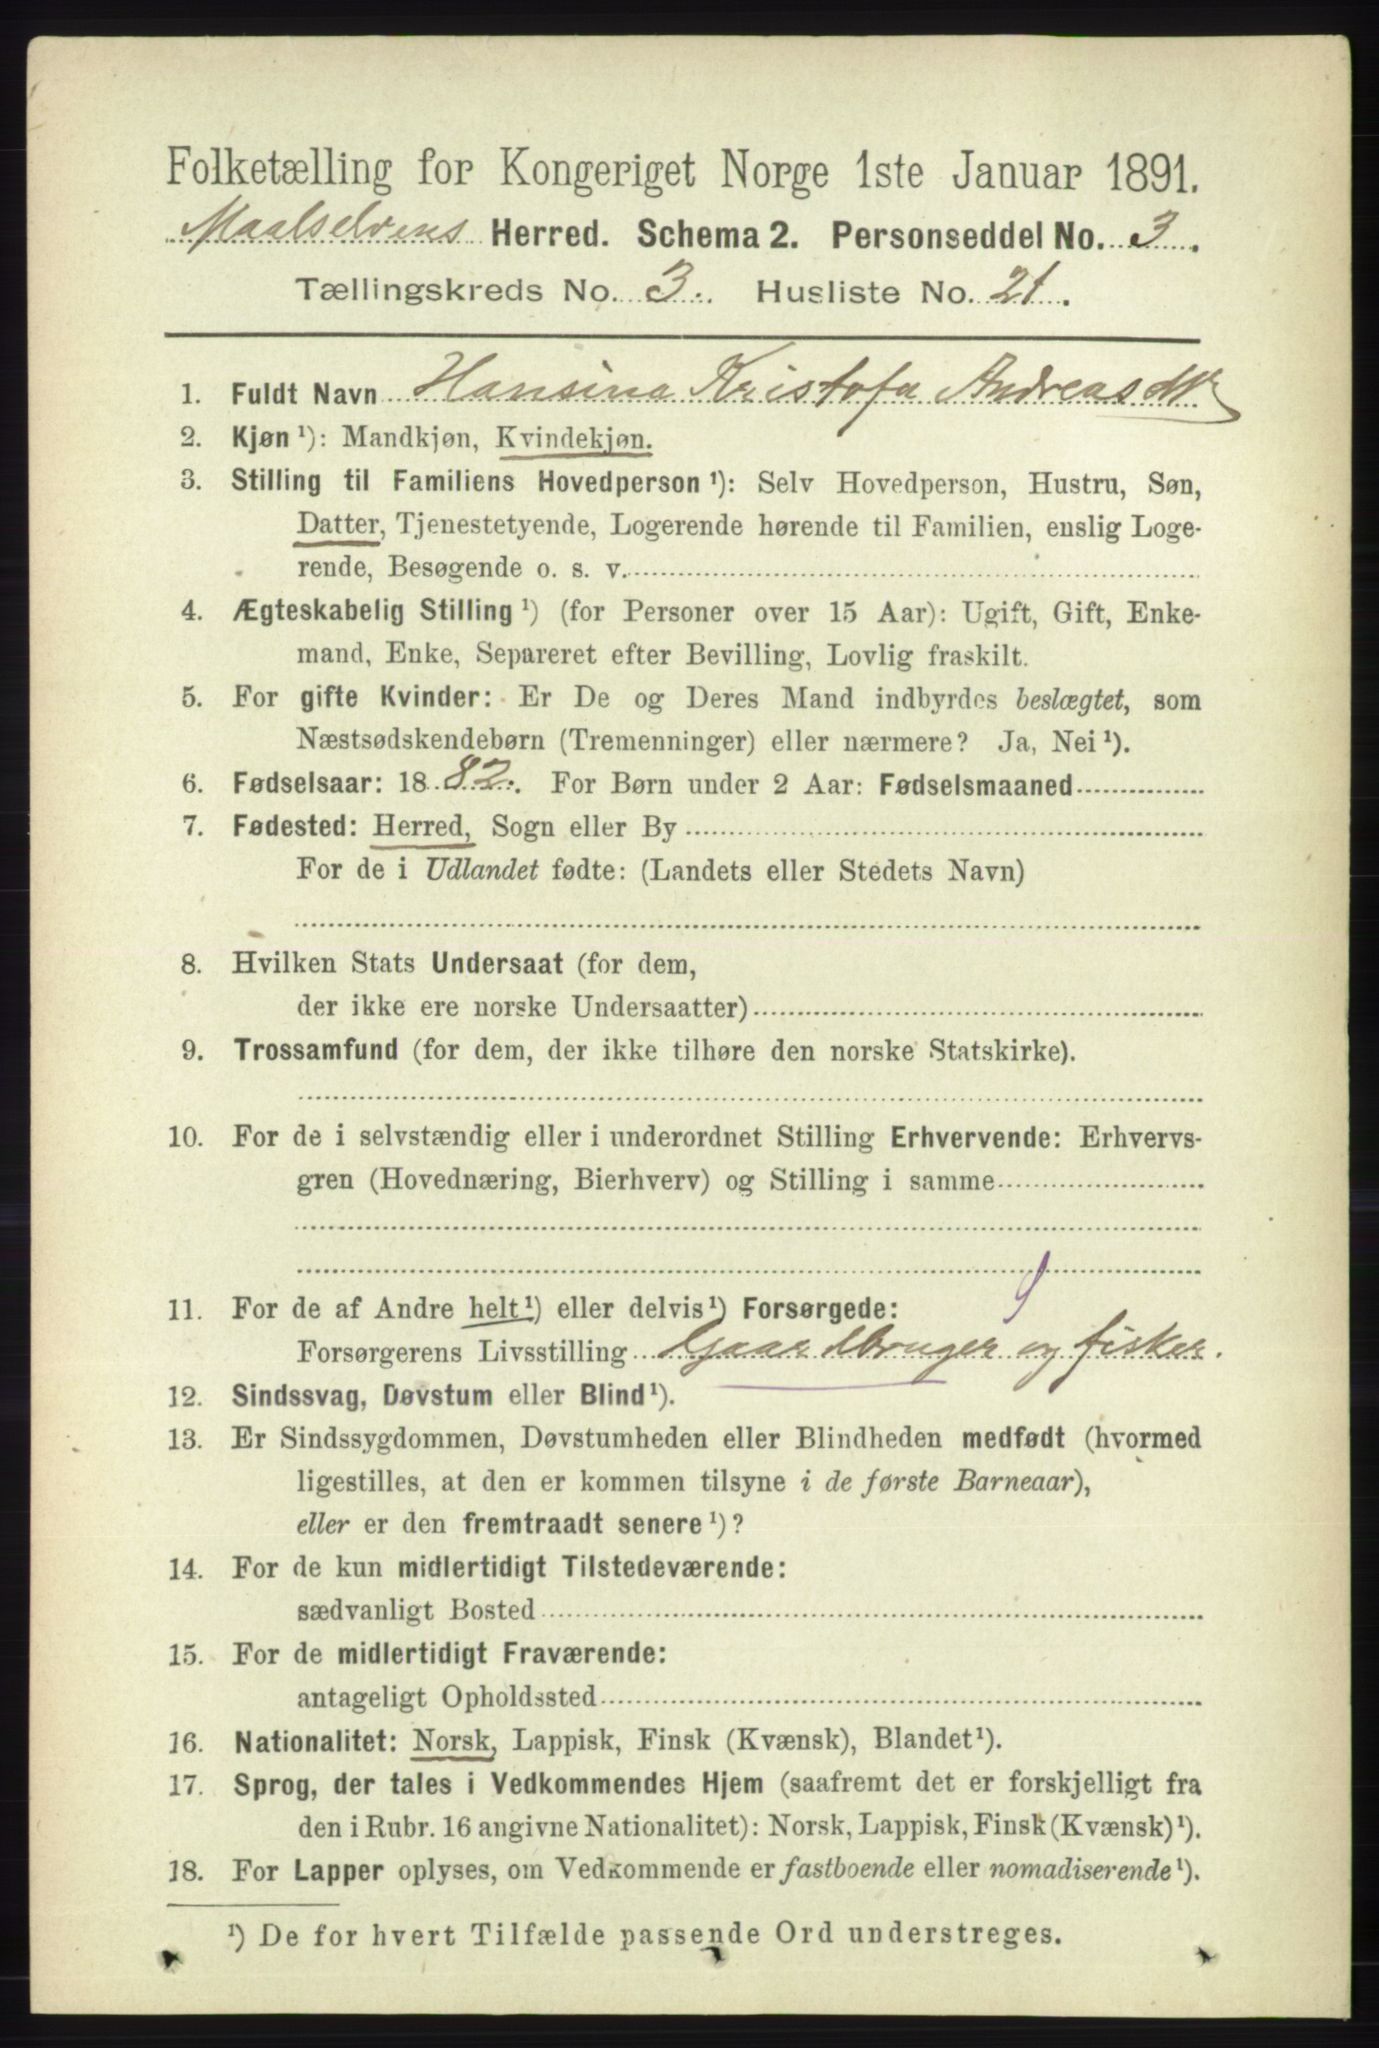 Folketælling for Kongeriget Norge 1ste Januar 1891.
Maalselvens Herred. Schema 2. Personseddel No. 3.
Tællingskreds No. 3. Husliste No. 21.
1. Fuldt Navn Hansina Kristofa Andreasdtr
2. Kjøn ¹): Mandkjøn, Kvindekjøn.
3. Stilling til Familiens Hovedperson ¹): Selv Hovedperson, Hustru, Søn,
Datter, Tjenestetyende, Logerende hørende til Familien, enslig Loge-
rende, Besøgende o. s. v.
4. Ægteskabelig Stilling ¹) (for Personer over 15 Aar): Ugift, Gift, Enke-
mand, Enke, Separeret efter Bevilling, Lovlig fraskilt.
5. For gifte Kvinder: Er De og Deres Mand indbyrdes beslægtet, som
Næstsødskendebørn (Tremenninger) eller nærmere? Ja, Nei ¹).
6. Fødselsaar: 1882. For Børn under 2 Aar: Fødselsmaaned
7. Fødested: Herred, Sogn eller By
For de i Udlandet fødte: (Landets eller Stedets Navn)
8. Hvilken Stats Undersaat (for dem,
der ikke ere norske Undersaatter)
9. Trossamfund (for dem, der ikke tilhøre den norske Statskirke).
10. For de i selvstændig eller i underordnet Stilling Erhvervende: Erhvervs-
gren (Hovednæring, Bierhverv) og Stilling i samme
11. For de af Andre helt ¹) eller delvis ¹) Forsørgede:
Forsørgerens Livsstilling Gaardbruger og fisker.
12. Sindssvag, Døvstum eller Blind ¹).
13. Er Sindssygdommen, Døvstumheden eller Blindheden medfødt (hvormed
ligestilles, at den er kommen tilsyne i de første Barneaar),
eller er den fremtraadt senere ¹)?
14. For de kun midlertidigt Tilstedeværende:
sædvanligt Bosted
15. For de midlertidigt Fraværende:
antageligt Opholdssted
16. Nationalitet: Norsk, Lappisk, Finsk (Kvænsk), Blandet ¹).
17. Sprog, der tales i Vedkommendes Hjem (saafremt det er forskjelligt fra
den i Rubr. 16 angivne Nationalitet): Norsk, Lappisk, Finsk (Kvænsk) ¹).
18. For Lapper oplyses, om Vedkommende er fastboende eller nomadiserende ¹).
¹) De for hvert Tilfælde passende Ord understreges.